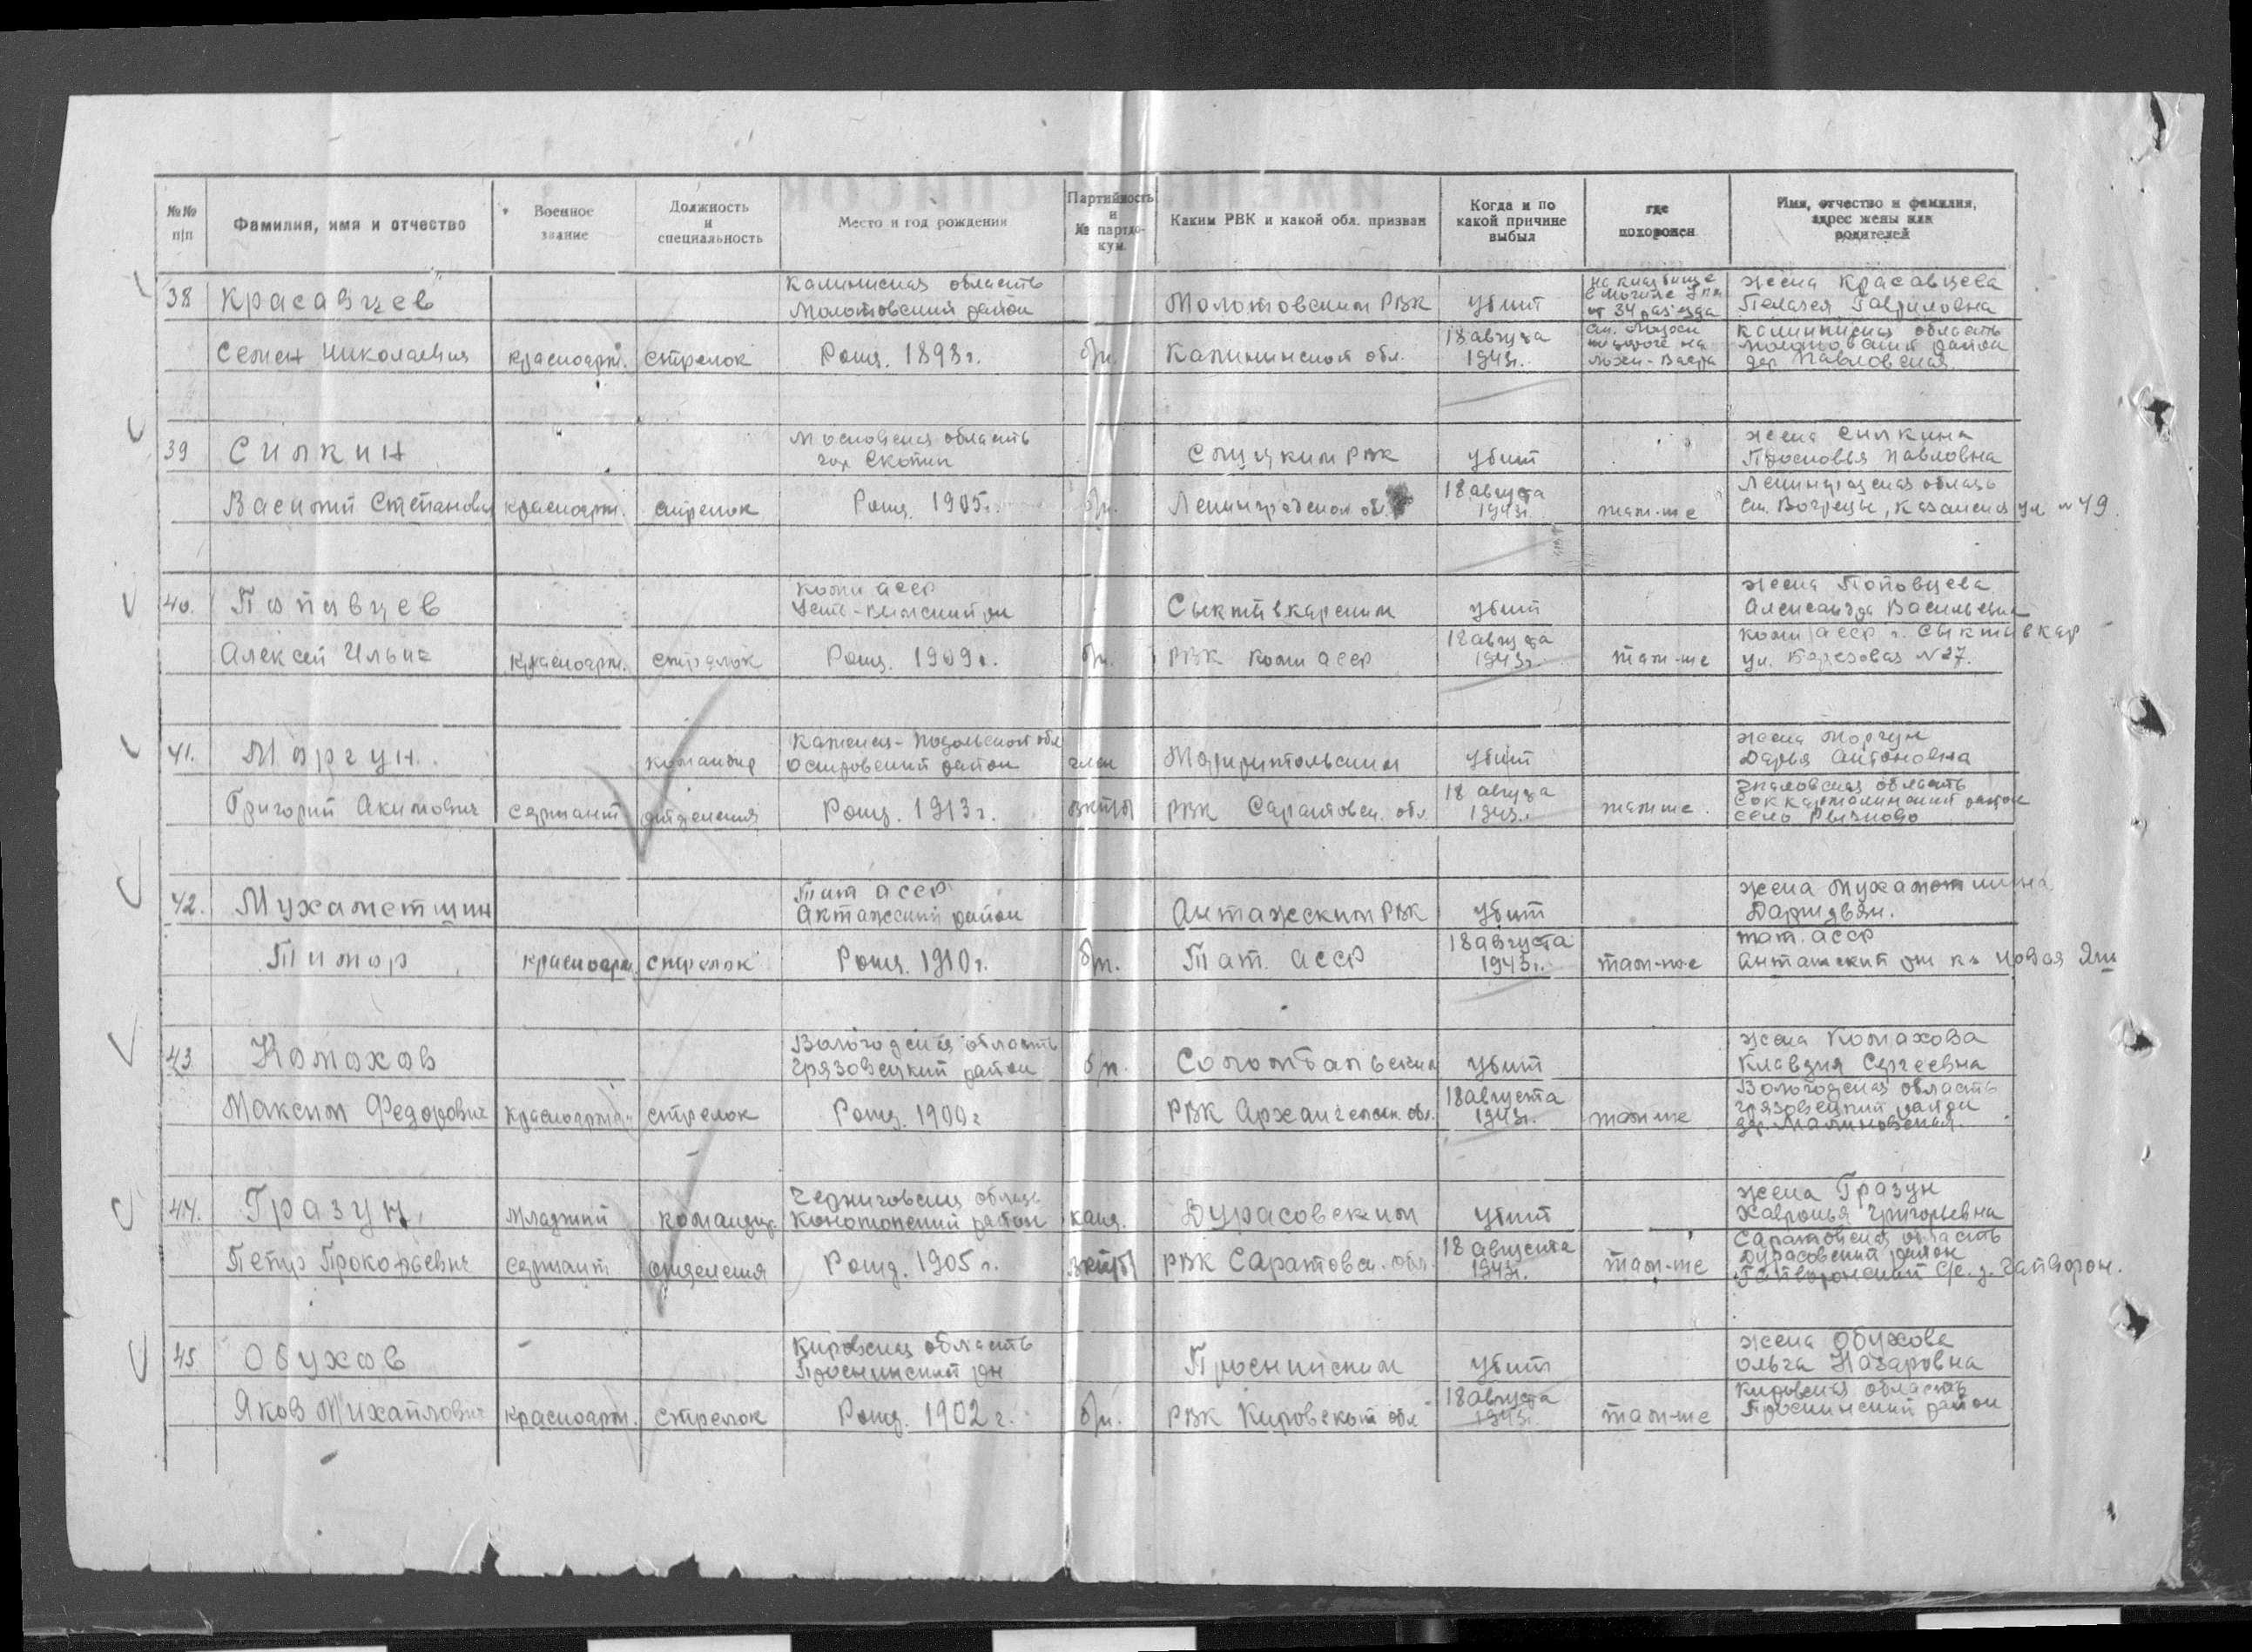 №№ п/п
Фамилия, имя и отчество
Военное звание
Должность и специальность
Место и год рождения
Партийность и № партдокум.
Каким РВК и какой обл. призван
Когда и по какой причине выбыл
где похоронен
Имя, отчество и фамилия, адрес жены или родителей
38 Красавцев
Семен Николаевич
красноарм.
стрелок
Калининская область
Молотовский район
Рожд. 1893 г.
б/п.
Молотовским РВК
Калининской обл.
убит
18 августа
1943 г.
на кладбище
в могиле
от 34 раз'езда
жена Красавцева
Пелагея Гавриловна
Калининская область
Молотовский район
дер. Павловская.
39 Силкин
Василий Степанович
красноарм.
стрелок
Московская область
гор Скопин
Рожд. 1905 г.
б/п.
Слуцким РВК
Ленинградской обл.
убит
18 августа
1943 г.
там-же
жена Силкина
Просковья Павловна
Ленинградская область
40. Поповцев
Алексей Ильич
красноарм.
стрелок
Коми АССР
Усть-Вымский рн
Рожд. 1909 г.
б/п.
Сыктывкарским
РВК Коми АССР
убит
18 августа
1943 г.
там-же
жена Поповцева
Александра Васильевна
Коми АССР г. Сыктывкар
ул. Березовая № 27.
41. Моргун.
Григорий Акимович
сержант
командир
отделения
Каменец-Подольской обл
район
Рожд. 1913 г.
член
ВКП/б/
РВК Саратовск. обл.
убит
18 августа
1943 г.
там-же
жена Моргун
Дарья Антоновна
Чкаловская область
район
село
42. Мухаметшин
Тимор
красноарм.
стрелок
Тат АССР
Актажский район
Рожд. 1910 г.
б/п.
Актажским РВК
Тат. АССР
убит
18 августа
1943 г.
там-же
жена Мухаметшина
тат. АССР
43 Комохов
Максим Федорович
красноарм.
стрелок
Вологодская область
Грязовецкий район
Рожд. 1900 г
б/п.
Соломбальским
РВК Архангельск. обл.
убит
18 августа
1943 г.
там-же
жена Комахова
Клавдия Сергеевна
Вологодская область
Грязовецкий район
др. Малиновская.
44. Гразун
Петр Прокофьевич
младший
сержант
командир
отделения
Черниговская область
Конотопский район
Рожд. 1905 г.
канд.
ВКП/б/
Дурасовским
РВК Саратовск. обл.
убит
18 августа
1943 г.
там-же
жена Гразун
Хавронья Григорьевна
Саратовская область
Дурасовский район
45 Обухов
Яков Михайлович
красноарм.
стрелок
Кировская область
Проснинский рн
Рожд. 1902 г.
б/п.
Проснийским
РВК Кировской обл
убит
18 августа
1943 г.
там-же
жена Обухова
Ольга Назаровна
Кировская область
Проснинский район